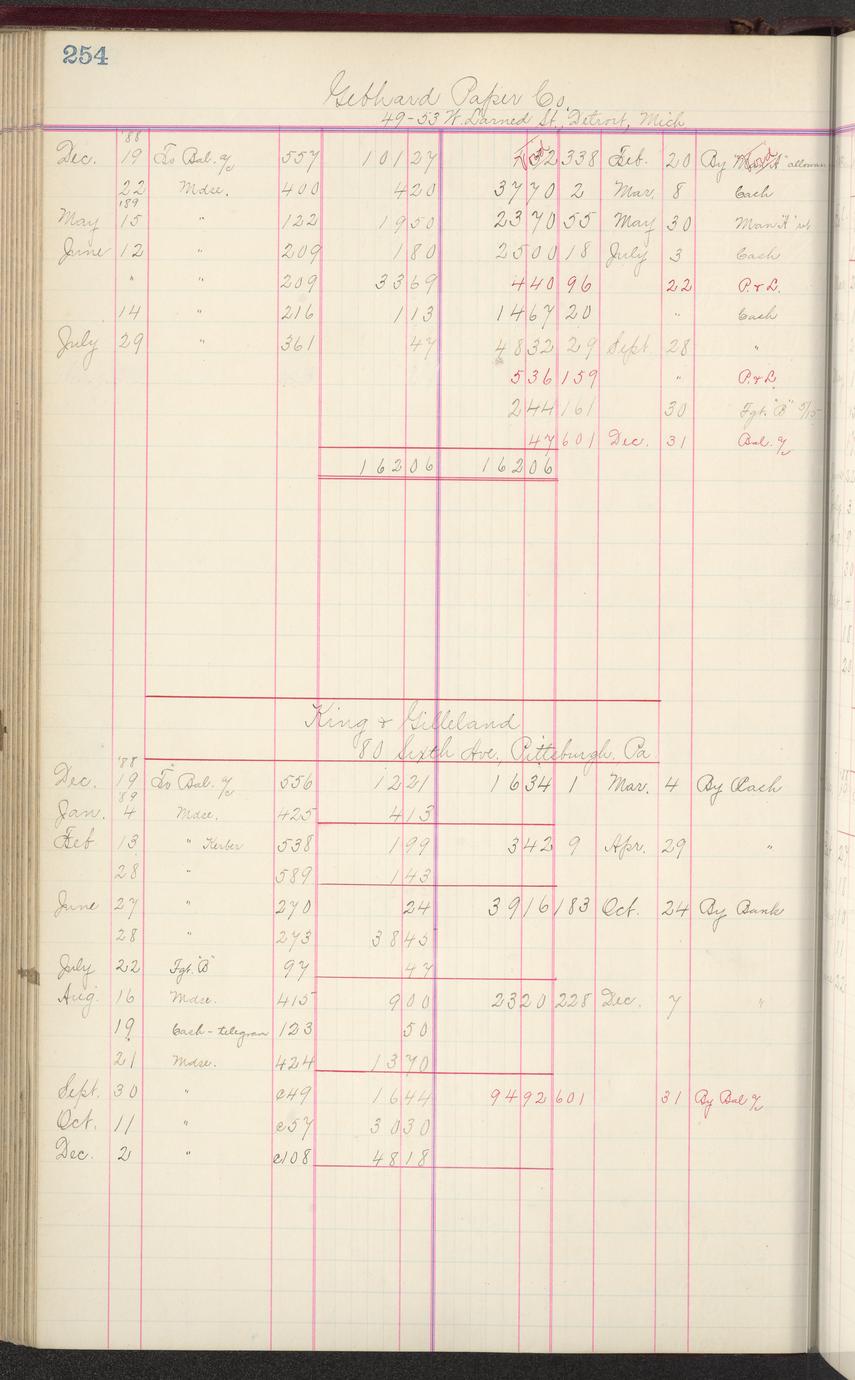 254
Gebhard Paper Co.
49-53 W. Larned St., Detroit, Mich
'88
Dec. 19 To Bal. a/c 557 101 27 338 Feb. 20 By "A" allowan
22 Mdse. 400 4 20 37 70 2 Mar. 8 Cash
'89
May 15 " 122 19 50 23 70 55 May 30 Man "A" ret
June 12 " 209 1 80 25 00 18 July 3 Cash
" " 209 33 69 4 40 96 22 P. & L.
14 " 216 1 13 14 67 20 " Cash
July 29 " 361 47 48 32 29 Sept. 28 "
5 36 159 " P. & L.
2 44 161 30 Fgt. "B" 9/15
47 601 Dec. 31 Bal. a/c
162 06 162 06
King & Gilleland
80 Sixth Ave., Pittsburgh, Pa.
'88
Dec. 19 To Bal. a/c 556 12 21 16 34 1 Mar. 4 By Cash
'89
Jan. 4 Mdse. 425 4 13
Feb 13 " Kerber 538 1 99 3 42 9 Apr. 29 "
28 " 589 1 43
June 27 " 270 24 39 16 183 Oct. 24 By Bank
28 " 273 38 45
July 22 Fgt. "B" 97 47
Aug. 16 Mdse. 415 9 00 23 20 228 Dec. 7 "
19 Cash - telegram 123 50
21 Mdse. 424 13 70
Sept. 30 " c49 16 44 94 92 601 31 By Bal a/c
Oct. 11 " c57 30 30
Dec. 2 " c108 48 18